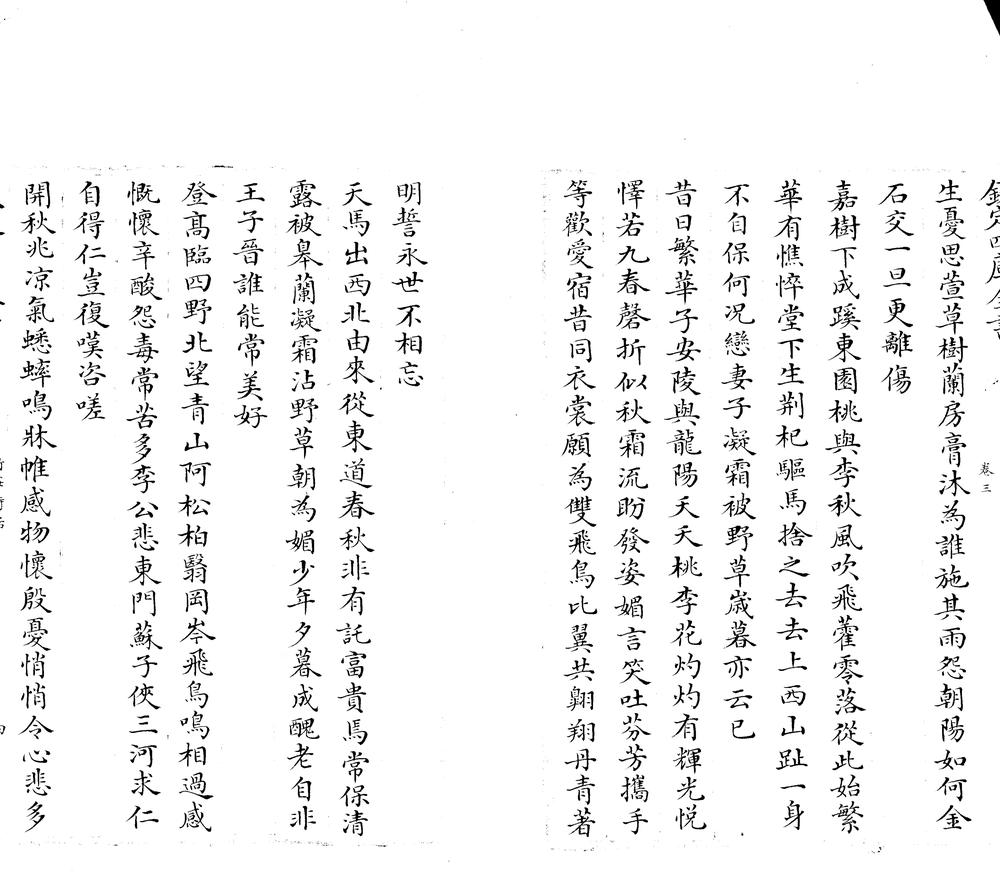 生憂思萱草樹蘭房膏沐為誰施其雨怨朝陽如何金
石交一旦更離傷
嘉樹下成蹊東園桃與李秋風吹飛藿零落從此始繁
華有憔悴堂下生荆杞驅馬捨之去去上西山趾一身
不自保何况戀妻子凝霜被野草嵗暮亦云已
昔日繁華子安陵與龍陽夭夭桃李花灼灼有輝光悦
懌若九春磬折似秋霜流盼發姿媚言笑吐芬芳攜手
等歡愛宿昔同衣裳願為雙飛鳥比翼共翺翔丹青著
明誓永世不相忘
天馬出西北由來從東道春秋非有託富貴焉常保清
露被皋蘭凝霜沾野草朝為媚少年夕暮成醜老自非
王子晉誰能常美好
登髙臨四野北望青山阿松柏翳岡岑飛鳥鳴相過感
慨懷辛酸怨毒常苦多李公悲東門蘇子俠三河求仁
自得仁豈復嘆咨嗟
開秋兆凉氣蟋蟀鳴牀帷感物懷殷憂悄悄令心悲多
卷三